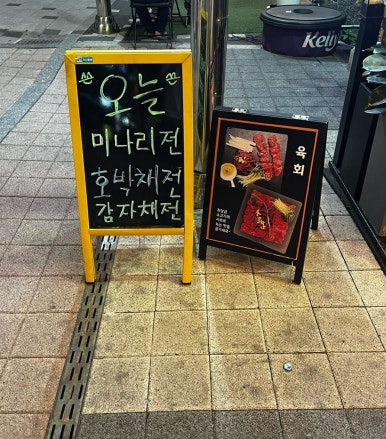 오늘
미나리전
호박채전
감자채전
육회
Kelly